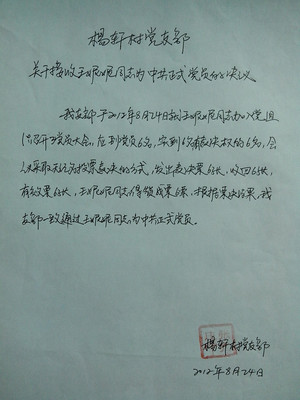 杨轩村党支部
关于接收王妮妮同志为中共正式党员的决议
我支部于2012年8月24日就王妮妮同志加入党组
织召开党员大会。应到党员6名,实到有表决权的6名,会
议采取无记名投票表决的方式,发出表决票6张,收回6张,
有效票6张,王妮妮同志得赞成票6票。根据表决结果,我
支部一致通过王妮妮同志为中共正式党员。
杨轩村党支部
2012年8月24日